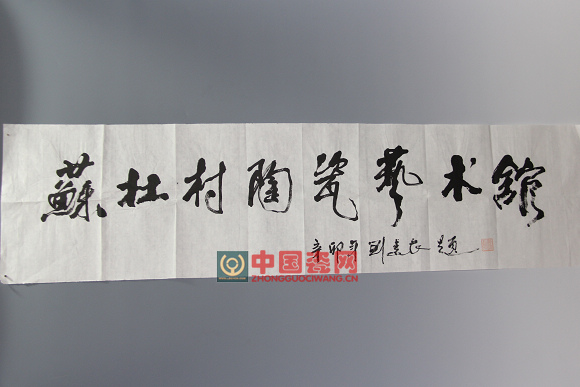 蘇杜村陶瓷藝术館
辛卯年 劉 題
中国瓷网
ZHONGGUOCIWANG.CN